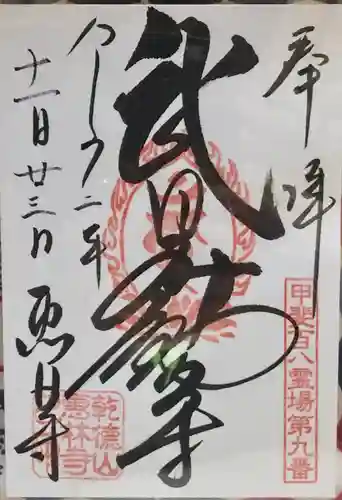 奉拝
甲斐百八霊場第九番
武田不動尊
令和二年
十一月廿三日 恵林寺
乾徳山
惠林寺